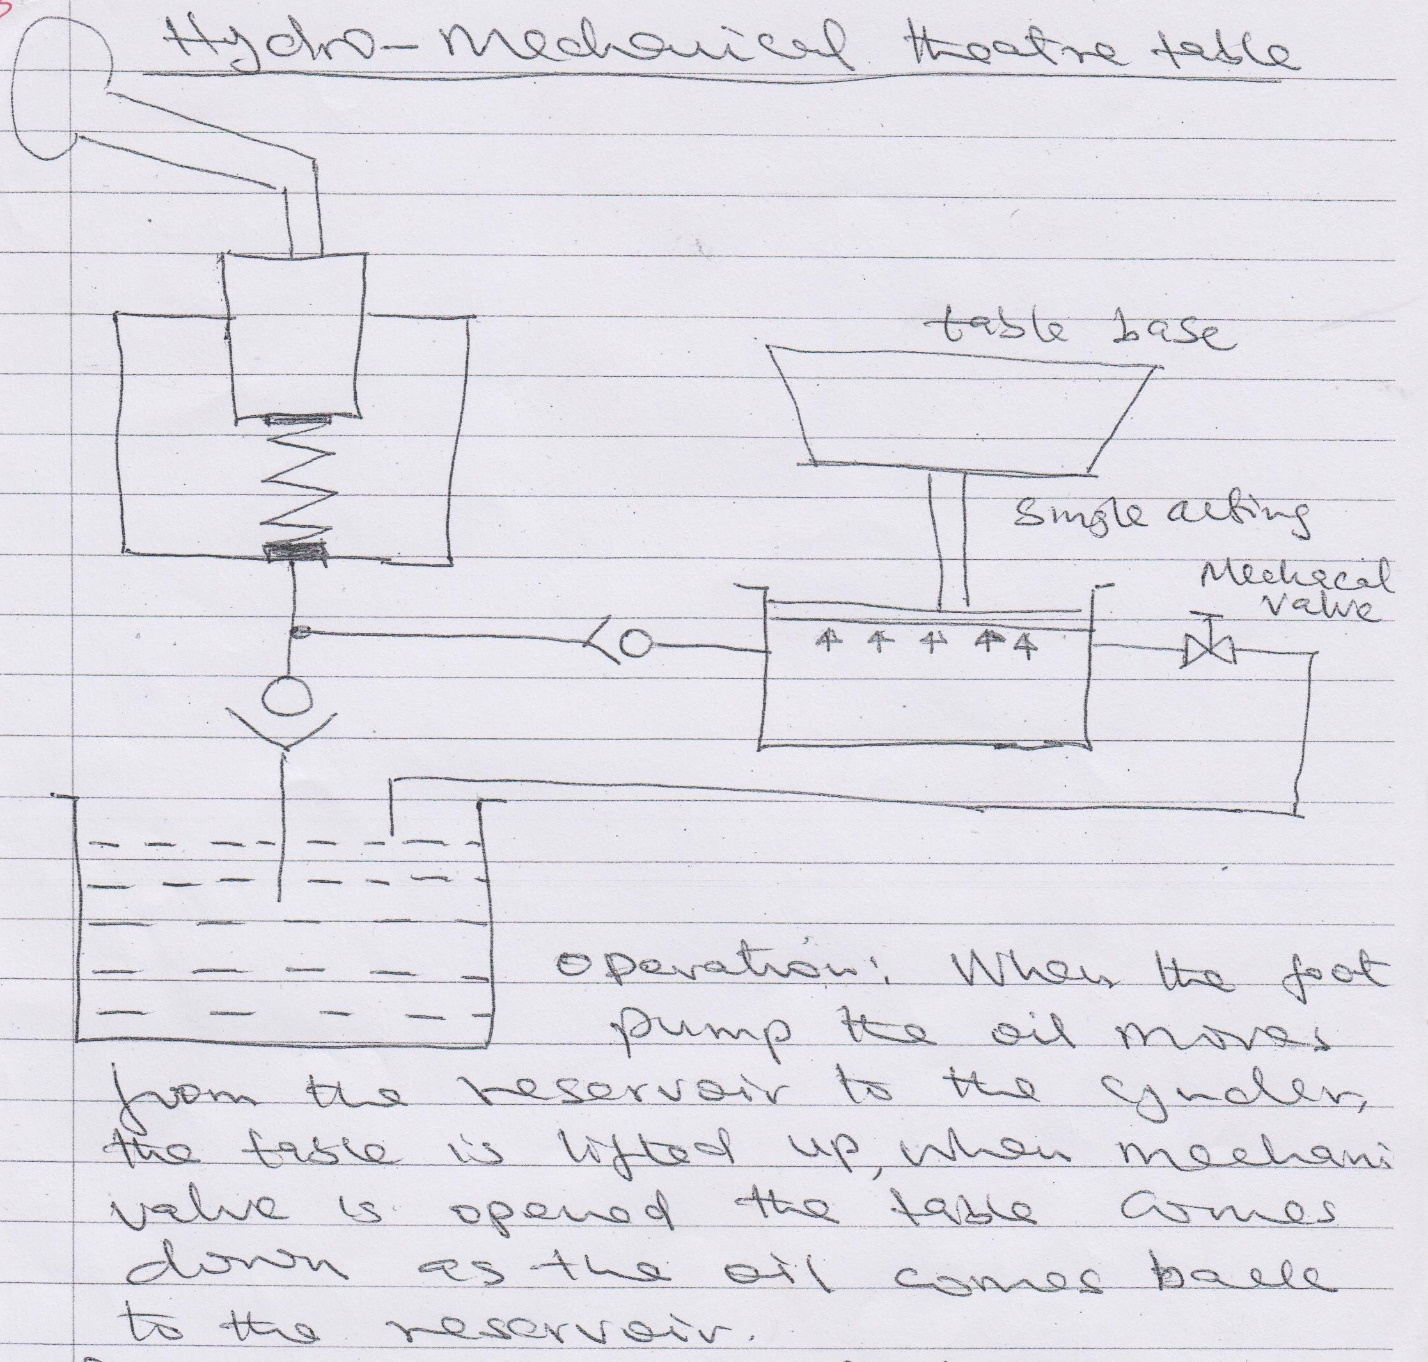 Hydro-Mechanical theatre table
table base
Single acting
Mechacal
valve
Operation: When the foot
pump the oil moves
from the reservoir to the cynder,
the table is lifted up, when mechani
valve is opened the table comes
down as the oil comes back
to the reservoir.